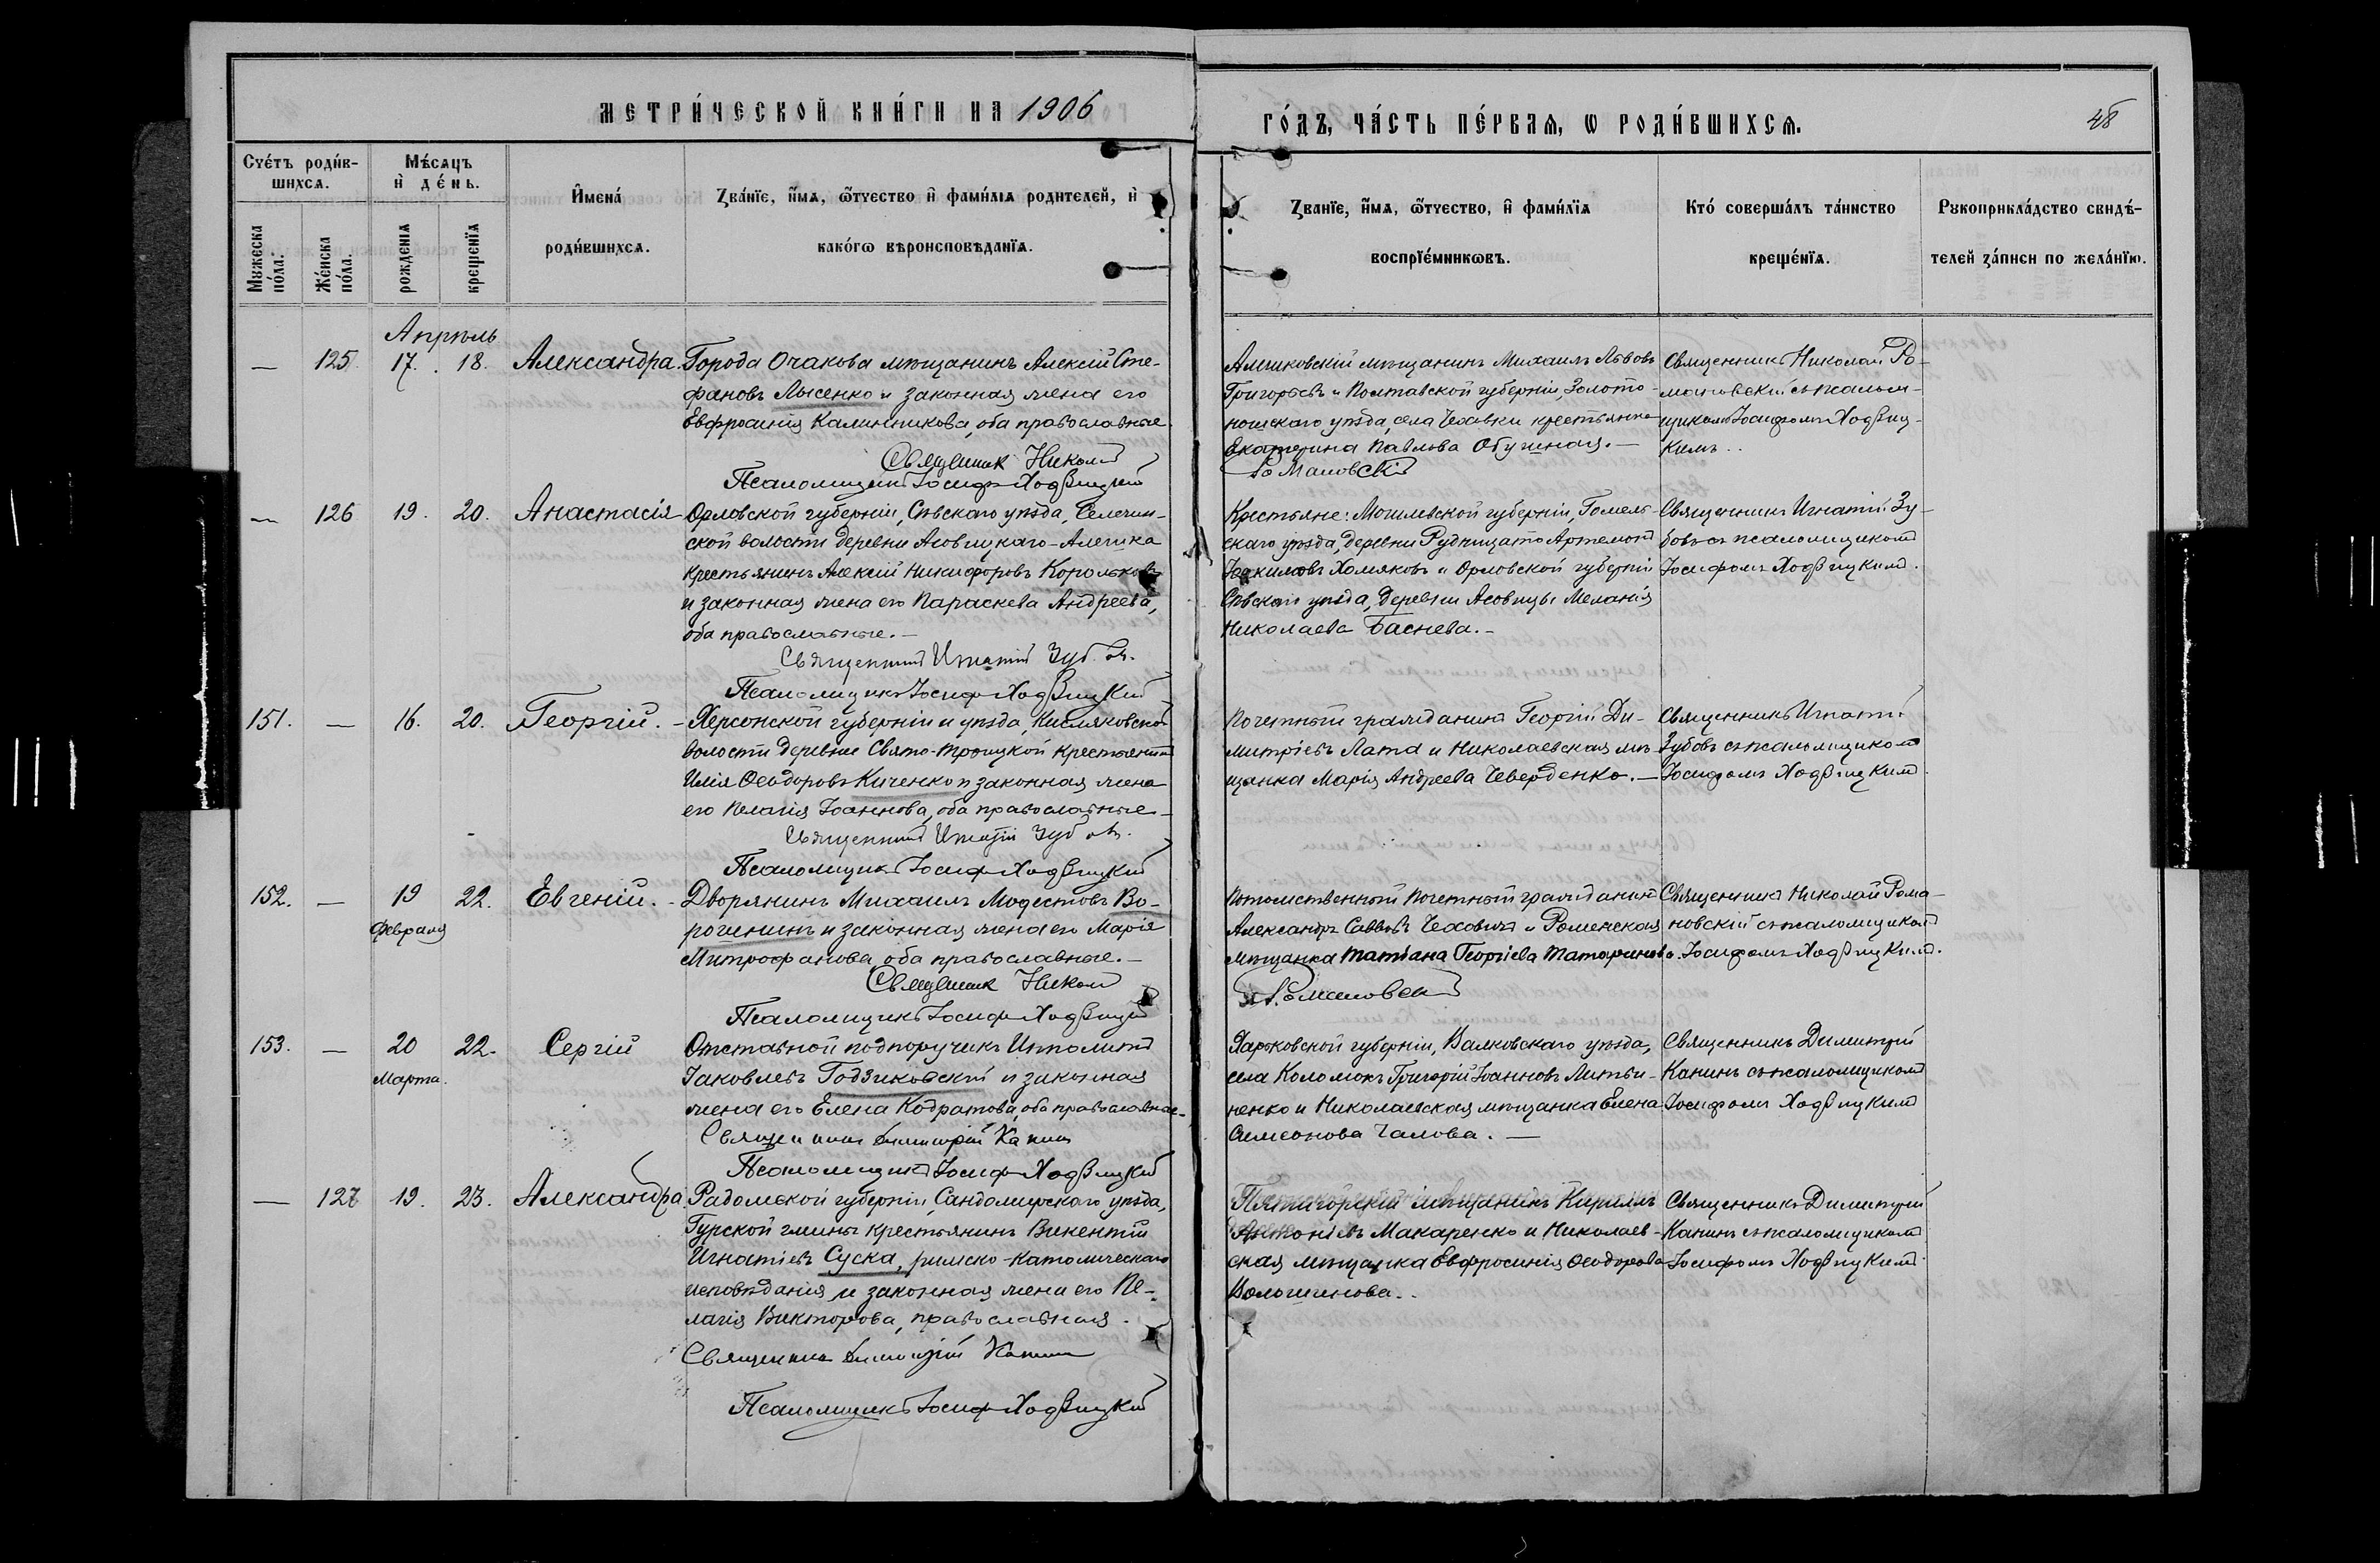 МЕТРИ́ЧЕСКОЙ КНИ́ГИ НА 1906
ГО́ДЪ, ЧА́СТЬ ПЕ́РВАѦ, Ѡ РОДИ́ВШИХСѦ.
48
Счéтъ роди́в-
шихсѧ.
Мѣ́сѧцъ
и҆ де́нь.
И҆мена́
роди́вшихсѧ.
Зва́нїе, и҆́мѧ, ѻ҆́тчество и҆ фамилїѧ родителей, и҆
како́гѡ вѣроисповѣданїѧ.
Мужеска
по́ла.
Же́нска
по́ла.
рожденїѧ
крещенїѧ
Званїе, и҆́мѧ, ѻ҆́тчество, и҆ фами́лїѧ
воспрїе́мникѡвъ.
Кто́ соверша́лъ та́инство
креще́нїѧ.
Рукоприкла́дство свидѣ́-
телей за́писи по жела́нїю.
Апрѣль
— 125. 17. 18. Александра. Города Очакова мѣщанинъ Алексій Сте-
фановъ Лысенко и законная жена его
Евфросинія Калинникова, оба православные.
Священник Николай
Романовскій
Псаломщикъ Іосифъ Ходзицкій
Алешковскій мѣщанинъ Михаилъ Львовъ
Григорьевъ и Полтавской губерніи, Золото-
ношскаго уѣзда, села Чеховки крестьянка
Екатерина Павлова Обушная. —
Священникъ Николай Ро-
мановскій съ псалом-
щикомъ Іосифомъ Ходзиц-
кимъ.
— 126 19. 20. Анастасія Орловской губерніи, Сѣвскаго уѣзда, Селечен-
ской волости деревни Асовицкаго-Алешка
крестьянинъ Алексій Никифоровъ Корольковъ
и законная жена его Параскева Андреева,
оба православные. —
Священникъ Игнатій Зубовъ.
Псаломщикъ Іосифъ Ходзицкій
Крестьяне: Могилевской губерніи, Гомель-
скаго уѣзда, деревни Рудницато Артемонъ
Іоакимовъ Хомяковъ и Орловской губерніи
Сѣвскаго уѣзда, деревни Асовицы Меланія
Николаева Баснева. —
Священникъ Игнатій Зу-
бовъ съ псаломщикомъ
Іосифомъ Ходзицкимъ.
151. — 16. 20. Георгій. Херсонской губерніи и уѣзда, Кисляковской
волости деревни Свято-Троицкой крестьянинъ
Илія Ѳеодоровъ Киченко и законная жена
его Пелагія Іоаннова, оба православные —
Священникъ Игнатій Зубовъ.
Псаломщикъ Іосифъ Ходзицкій
Почетный гражданинъ Георгій Ди-
митріевъ Лата и Николаевская мѣ-
щанка Марія Андреева Чеверденко. —
Священникъ Игнатій
Зубовъ съ псаломщикомъ
Іосифомъ Ходзицкимъ
152. — 19 22. Евгеній. Дворянинъ Михаилъ Модестовъ Во-
Февраля
рошнинъ и законная жена его Марія
Митрофанова, оба православные. —
Священник Николай
Романовскій
Псаломщикъ Іосифъ Ходзицкій
Потомственный почетный гражданинъ
Александръ Саввовъ Чеховичъ и Роменская
мѣщанка Татіана Георгіева Татаринова.
Священникъ Николай Рома-
новскій съ псаломщикомъ
Іосифомъ Ходзицкимъ.
153. — 20 22. Сергій Отставной подпоручикъ Ипполитъ
Марта.
Іаковлевъ Годзиковскій и законная
жена его Елена Кодратова, оба православные —
Священникъ Димитрій Канинъ
Псаломщикъ Іосифъ Ходзицкій
Харьковской губерніи, Валковскаго уѣзда,
села Коломокъ Григорій Іоанновъ Литви-
ненко и Николаевская мѣщанка Елена
Симеонова Чалова. —
Священникъ Димитрій
Канинъ съ псаломщикомъ
Іосифомъ Ходзицкимъ
— 127 19. 23. Александра. Радомской губерніи, Сандомирскаго уѣзда,
Гурской гмины крестьянинъ Викентій
Игнатіевъ Суска, римско-католическаго
исповѣданія, и законная жена его Пе-
лагія Викторова, православная.
Священникъ Димитрій Канинъ
Псаломщикъ Іосифъ Ходзицкій
Пятигорскій мѣщанинъ Кириллъ
Антоніевъ Макаренко и Николаев-
ская мѣщанка Евфросинія Ѳеодорова
Волошинова. —
Священникъ Димитрій
Канинъ съ псаломщикомъ
Іосифомъ Ходзицкимъ.